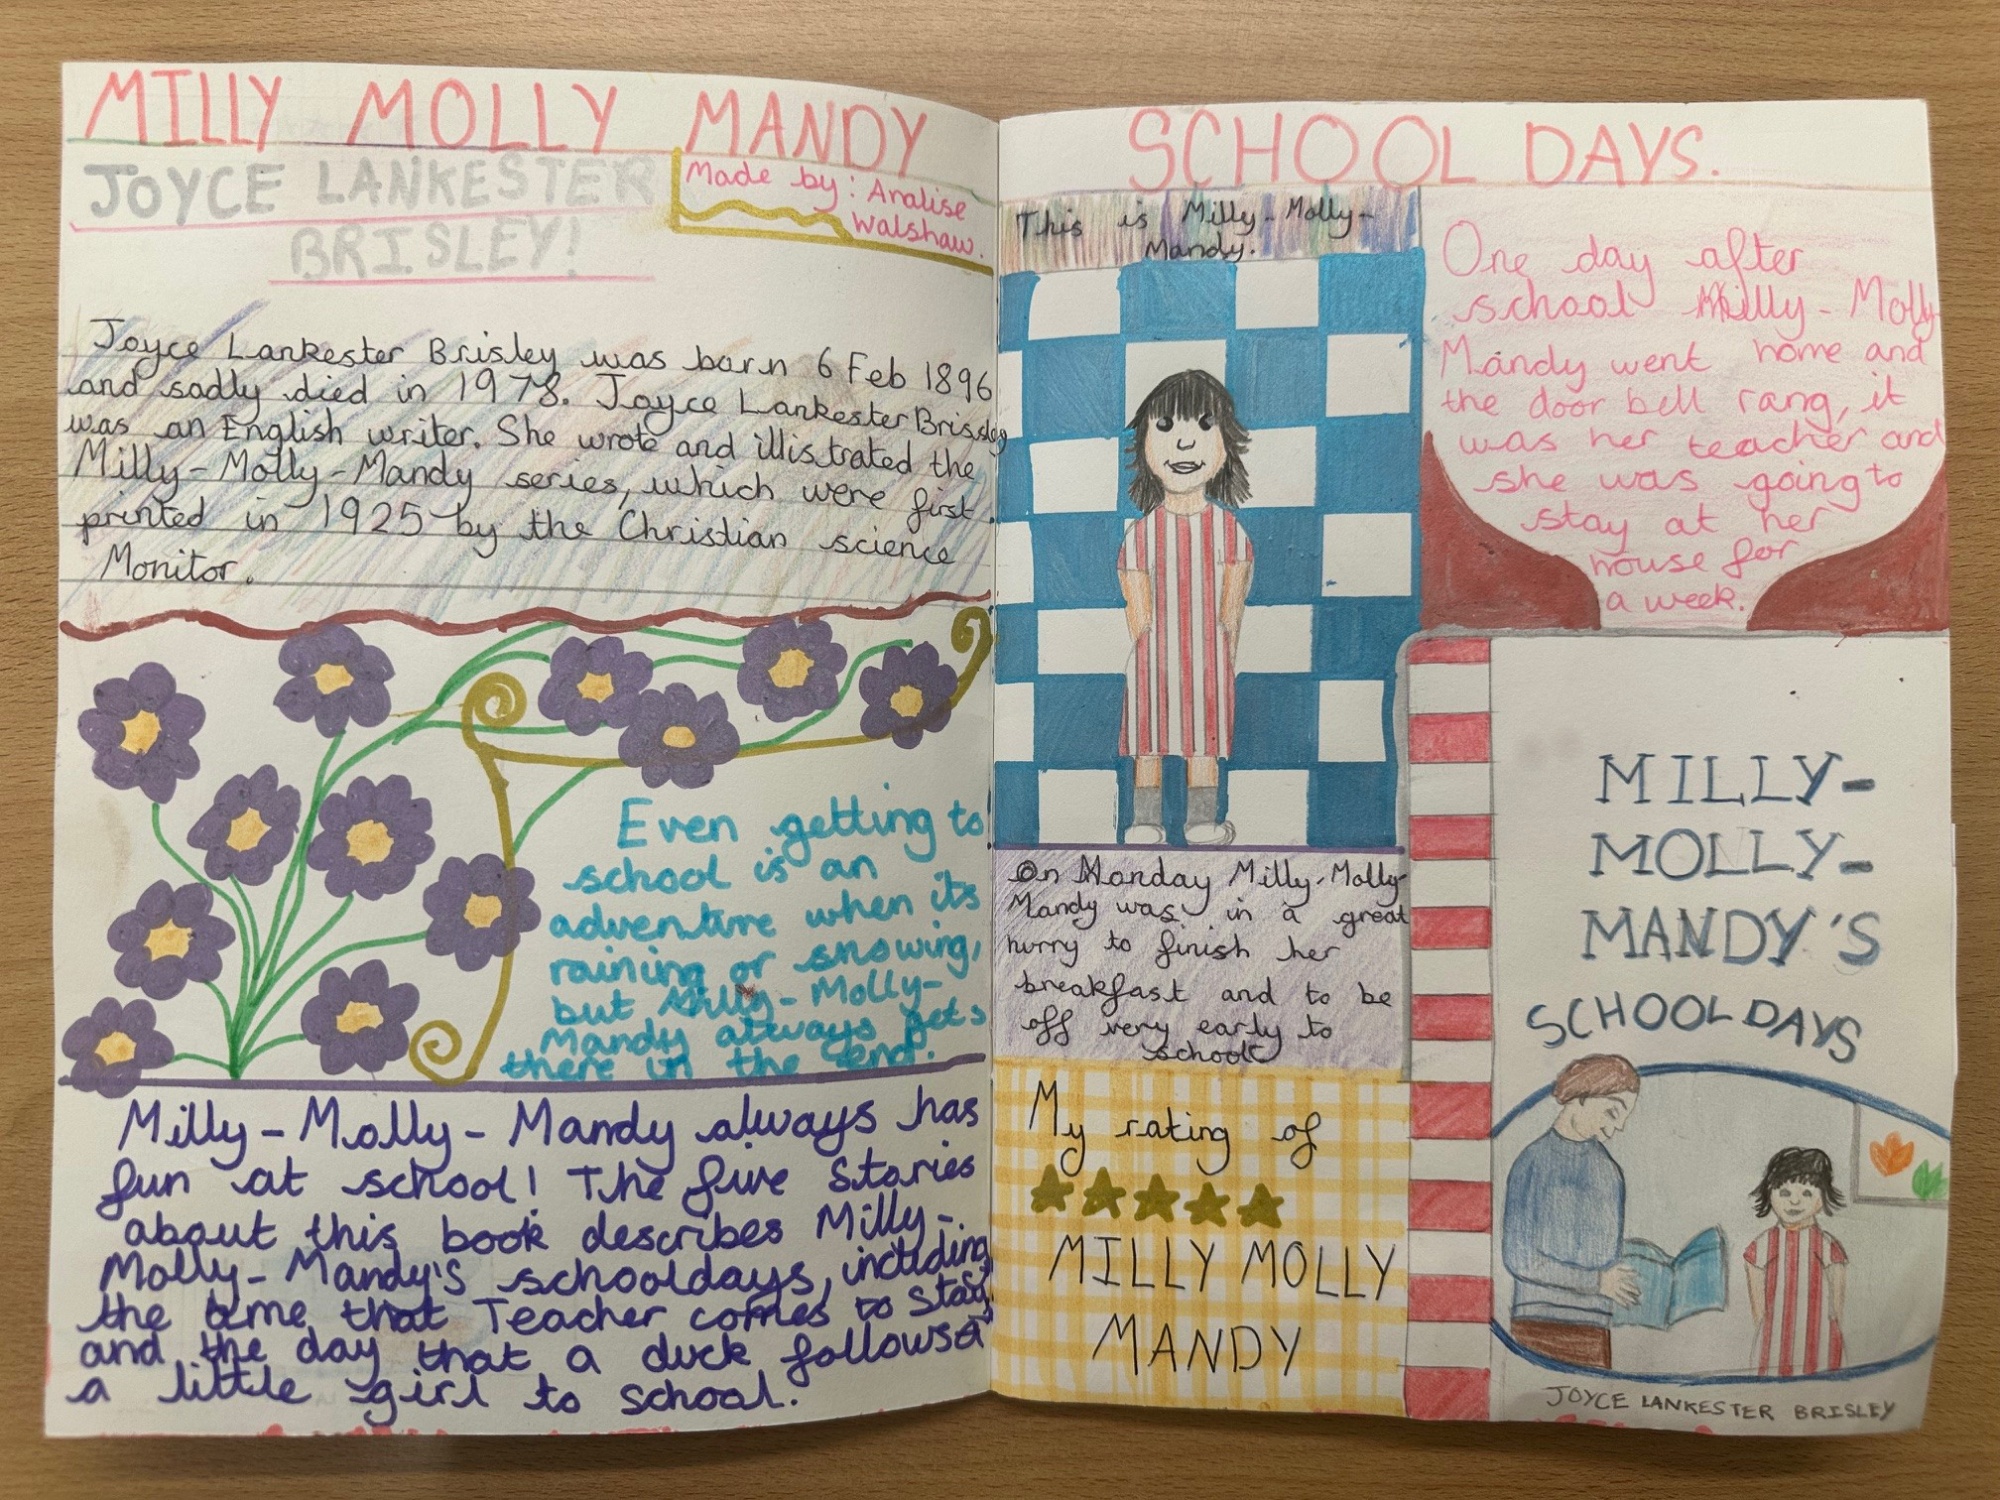 MILLY MOLLY MANDY
JOYCE LANKESTER
BRISLEY!
Made by: Analise
Walshaw.
Joyce Lankester Brisley was born 6 Feb 1896
and sadly died in 1978. Joyce Lankester Brisley
was an English writer. She wrote and illistrated the
Milly-Molly-Mandy series, which were first
printed in 1925 by the Christian science
Monitor.
Even getting to
school is an
adventure when its
raining or snowing,
but Milly-Molly-
Mandy always gets
there in the end.
Milly-Molly-Mandy always has
fun at school! The five Stories
about this book describes Milly-
Molly-Mandy's schooldays, including
the time that Teacher comes to stay,
and the day that a duck follows a
a little girl to school.
SCHOOL DAYS.
This is Milly-Molly-
Mandy.
On Monday Milly-Molly-
Mandy was in a great
hurry to finish her
breakfast and to be
off very early to
school
My rating of
MILLY MOLLY
MANDY
One day after
school Milly-Molly
Mandy went home and
the door bell rang, it
was her teacher and
she was going to
stay at her
house for
a week.
MILLY-
MOLLY-
MANDY'S
SCHOOL DAYS
JOYCE LANKESTER BRISLEY